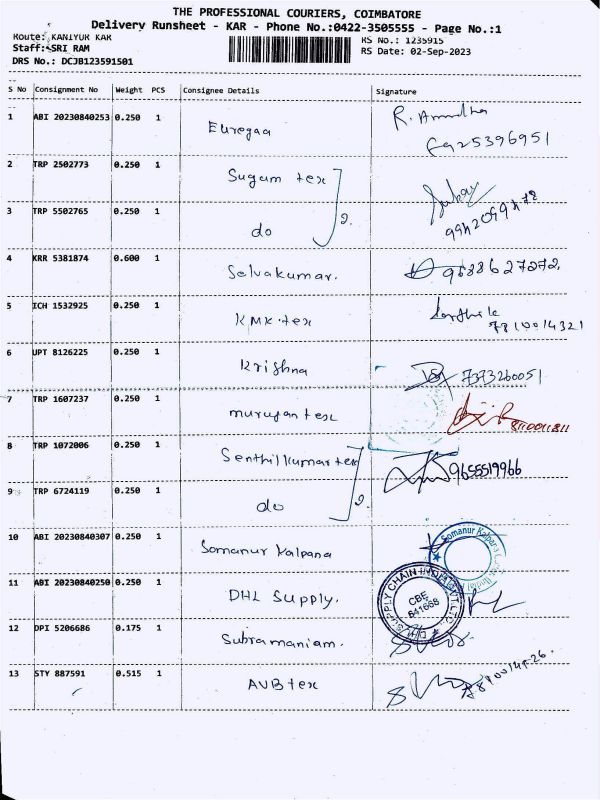 THE PROFESSIONAL COURIERS, COIMBATORE
Delivery Runsheet - KAR - Phone No.:0422-3505555 - Page No.:1
Route: KANIYUR KAR
RS No.: 1235915
Staff: SRI RAM
RS Date: 02-Sep-2023
DRS No.: DCJB123591501
S No Consignment No Weight PCS Consignee Details Signature
1 ABI 20230840253 0.250 1 Euregaa R. Amudha
2 TRP 2502773 0.250 1 Sugum tex
3 TRP 5502765 0.250 1 do 2.
4 KRR 5381874 0.600 1 Selvakumar. 9688627272.
5 ICH 1532925 0.250 1 KMK.tex 7810014321
6 UPT 8126225 0.250 1 Krishna 7373260051
7 TRP 1607237 0.250 1 murugan tex
8 TRP 1072006 0.250 1 Senthilkumar tex 9655519966
9 TRP 6724119 0.250 1 do 2.
10 ABI 20230840307 0.250 1 Somanur Kalpana Somanur Kalpana
11 ABI 20230840250 0.250 1 DHL Supply. SUPPLY CHAIN INDIA PVT LTD. CBE 641658
12 DPI 5206686 0.175 1 Subramaniam.
13 STY 887591 0.515 1 AVB tex